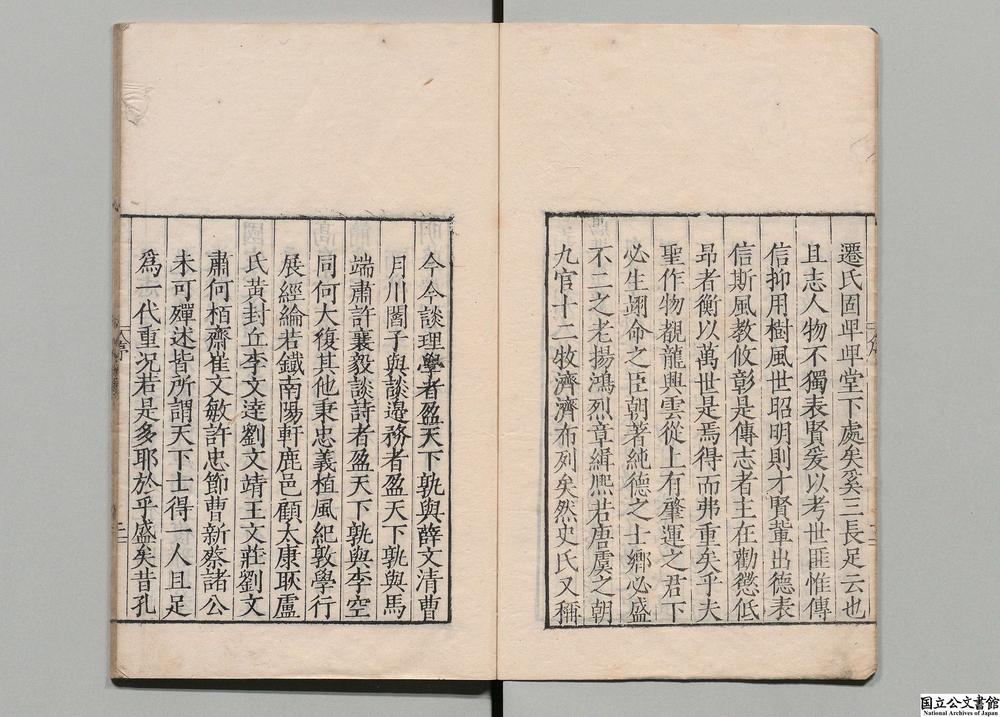 遷氏固卑卑堂下處矣奚三長足云也
且志人物不獨表賢爰以考世匪惟傳
信抑用樹風世昭明則才賢軰出德表
信斯風教攸彰是傳志者主在勸懲低
昻者衡以萬世是焉得而弗重矣乎夫
聖作物覩龍興雲從上有肇運之君下
必生翊命之臣朝著純德之士鄉必盛
不二之老揚鴻烈章緝熈若唐虞之朝
九官十二牧濟濟布列矣然史氏又稱
今今談理學者盈天下孰與薛文清曹
月川閻子與談邊務者盈天下孰與馬
端肅許襄毅談詩者盈天下孰與李空
同何大復其他秉忠義植風紀敦學行
展經綸若鐵南陽軒鹿邑顧太康耿盧
氏黃封丘李文逹劉文靖王文莊劉文
肅何栢齋崔文敏許忠節曹新蔡諸公
未可殫述皆所謂天下士得一人且足
爲一代重况若是多耶於乎盛矣昔孔
国立公文書館
National Archives of Japan